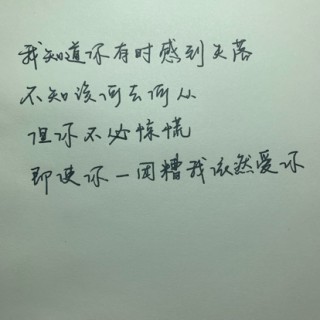 我知道你有时感到失落
不知该何去何从
但你不必惊慌
即使你一团糟我依然爱你